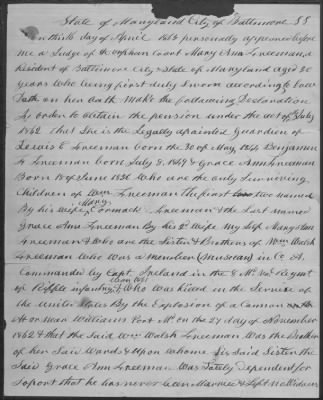 State of Maryland City of Baltimore SS
on this day of April 186 personally appeared before
me a Judge of the orphan Court Mary Ann Freeman a
resident of Baltimore City & State of Maryland aged 30
years who being first duly sworn according to law
on her oath make the following Declaration
In order to obtain the pension under the act of July
1862 that she is the Legally apointed Guardien of
Lewis E Freeman born the 30 of May 1844 Benjamin
Freeman born July 8. 184 & Grace Ann Freeman
Born 18 of June 1850 Who are the only Surviving
Children of Wm Freeman the first two named
By his wife Mary Cormack Freeman & the Last named
Grace Ann Freeman By his 2d Wife My Self Mary Ann
Freeman & Who are the Sister & Brothers of Wm Walsh
Freeman Who was a member (Musician) in Co A.
Commanded by Capt. Ireland in the 8 Md Vol Regmt
of infantry Who was killed in the Service of
the United States By the Explosion of a Cannon
At or near Williams Port Md on the 27 day of November
1862 & that the Said Wm Walsh Freeman Was the Brother
of her Said Wards & Upon whome his Said Sister the
Said Grace Ann Freeman Was Dependent for
Suport that he has never been Married & Left no Widow